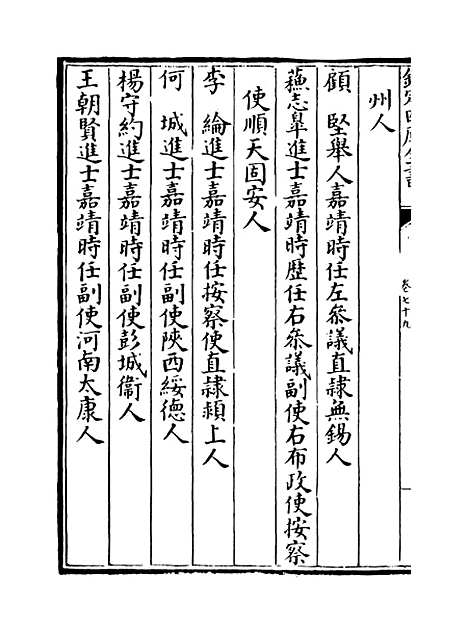 欽定四庫全書
卷七十九
州人
顧　堅舉人嘉靖時任左叅議直隷無錫人
蘓志臯進士嘉靖時歴任右叅議副使右布政使按察
使順天固安人
李　綸進士嘉靖時任按察使直隷頴上人
何　城進士嘉靖時任副使陜西綏德人
楊守約進士嘉靖時任副使彭城衞人
王朝賢進士嘉靖時任副使河南太康人